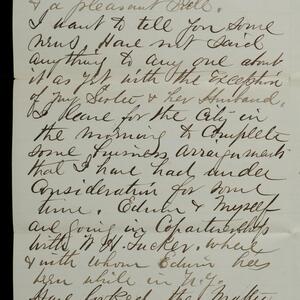 & a pleasant
I want to tell you some
news, Have not said
anything to any one about
it as yet with the exception
of my Sister & her Husband.
I leave for the City in
the morning to Complete
some business arrangements
that I have had under
Consideration for some
time. Edwin & Myself
are going in Copartnership
with W. H. Tucker, where
& with whom Edwin has
been while in N.Y.
Have looked the Matter